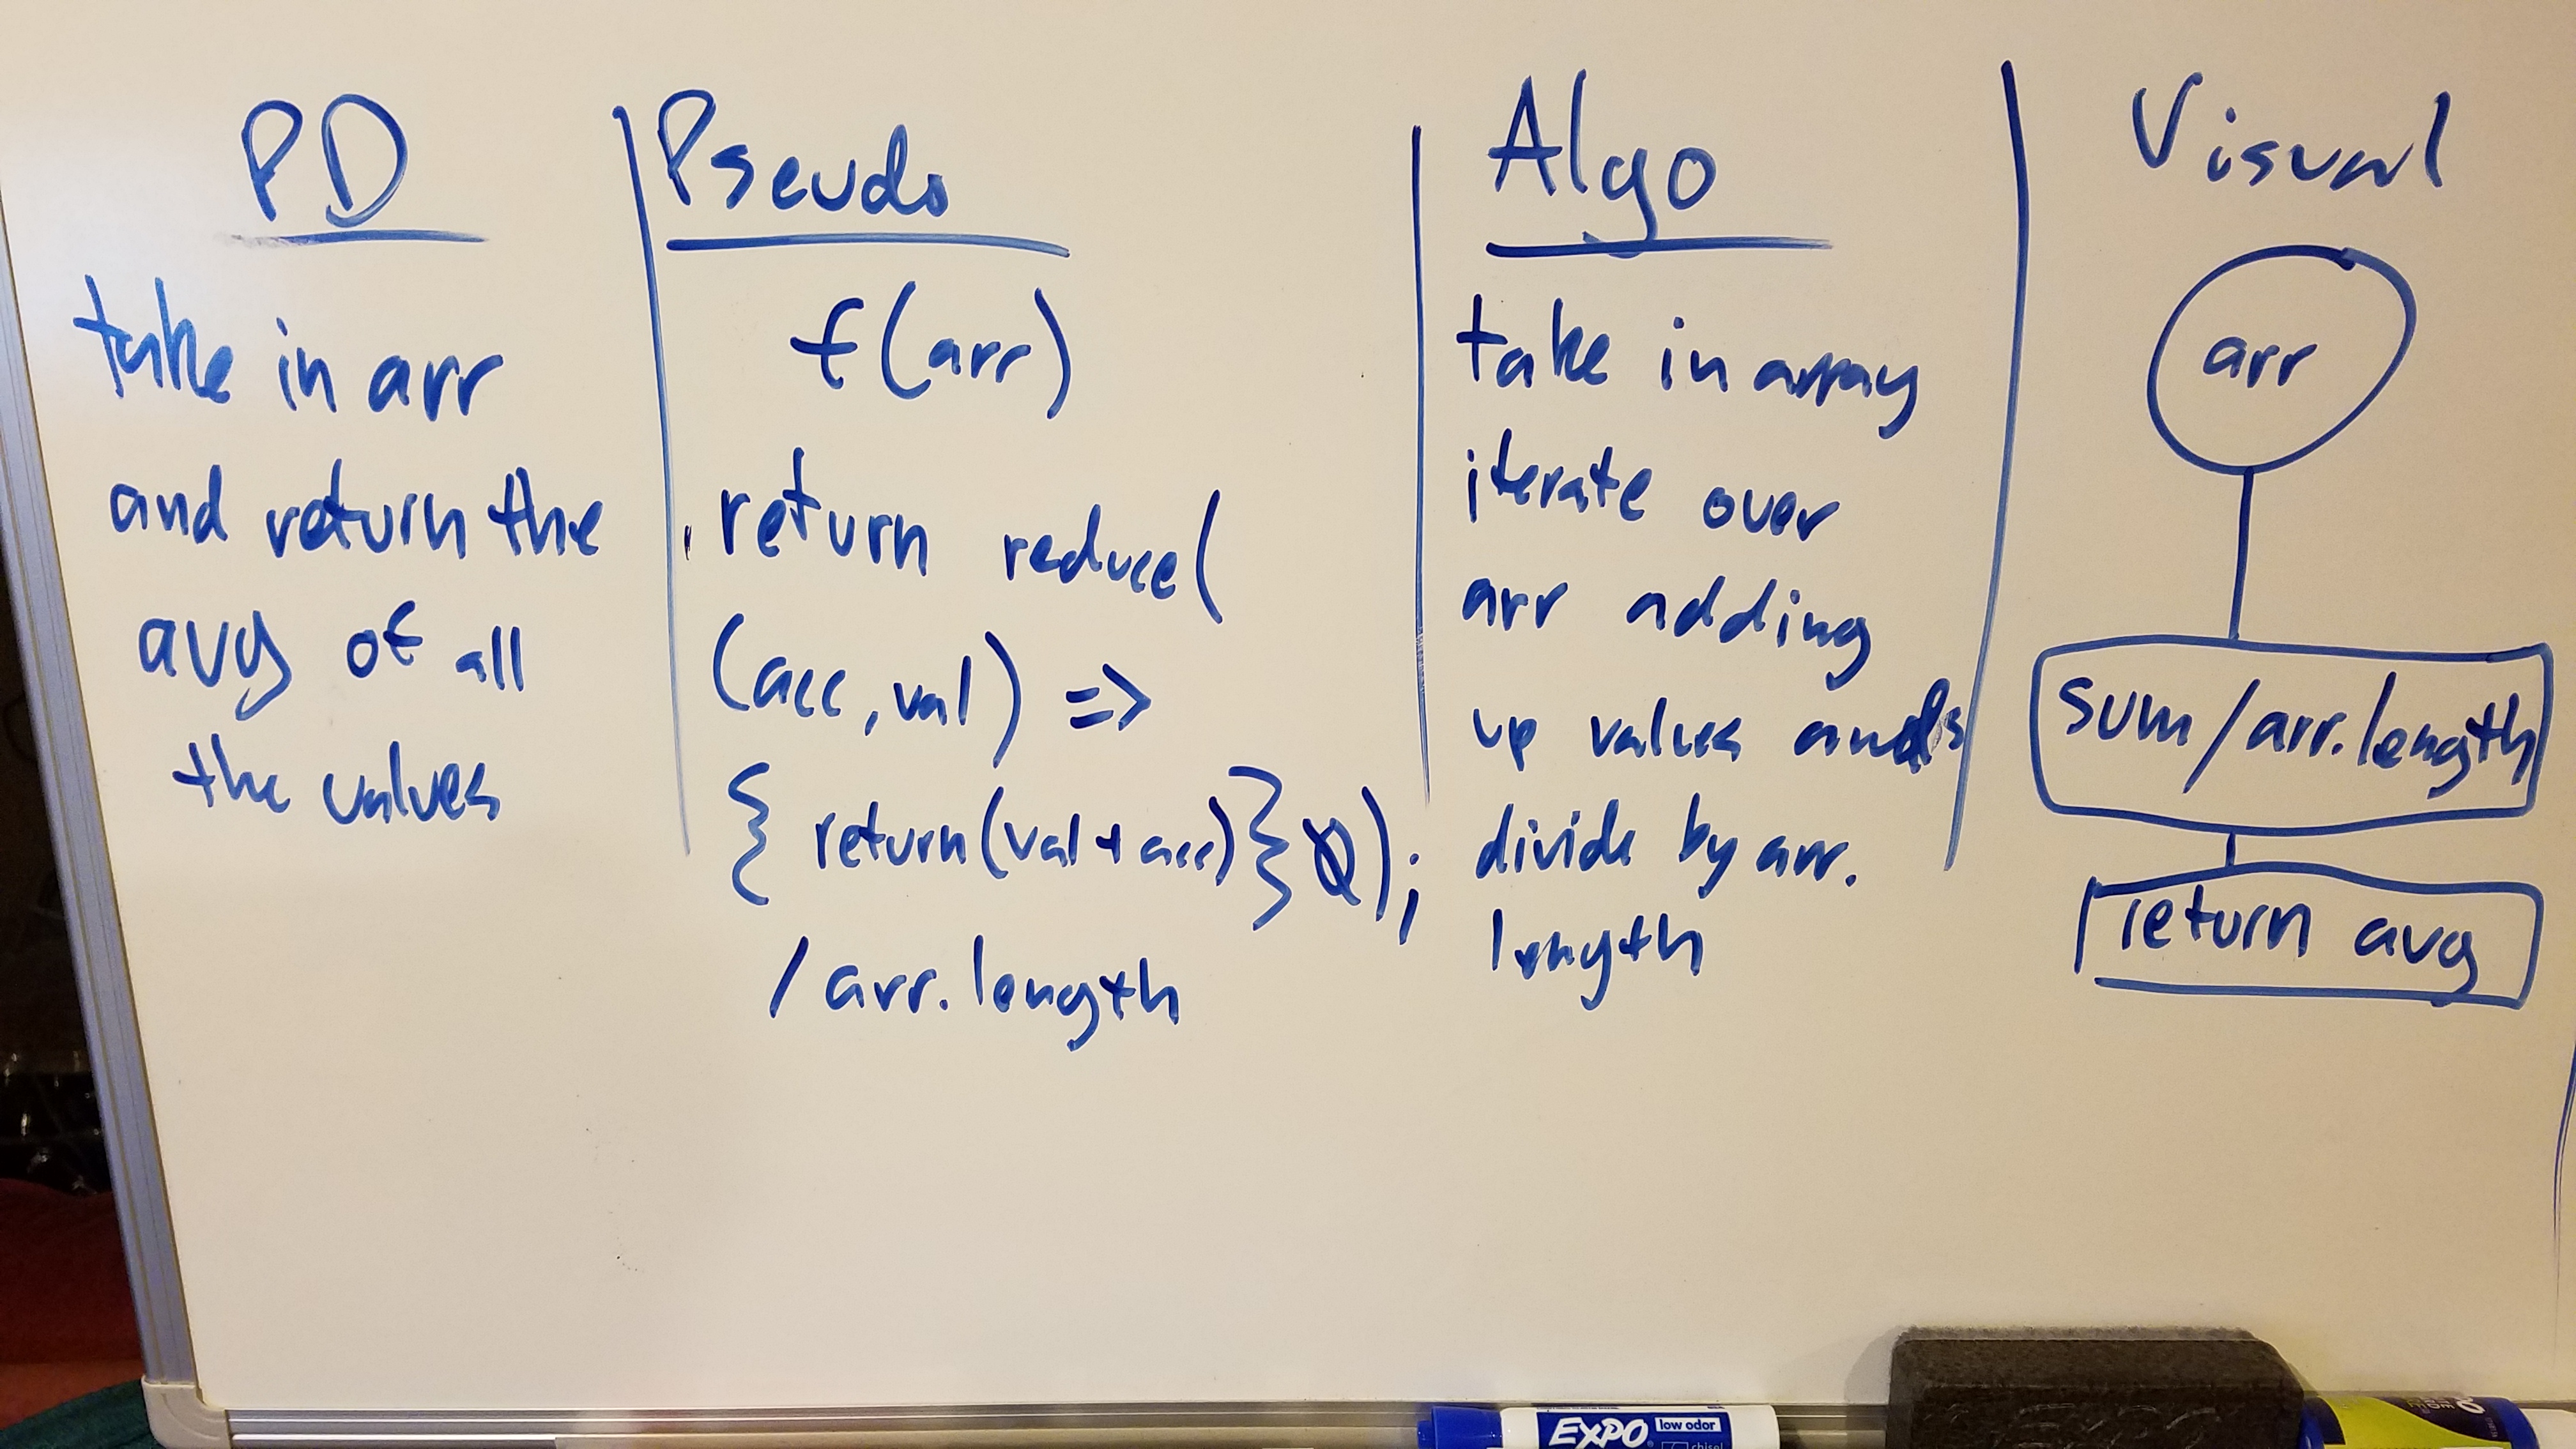 PD
take in arr
and return the
avg of all
the values
Pseudo
f(arr)
return reduce(
(acc, val) =>
{ return(val + acc)} 0);
/ arr.length
Algo
take in array
iterate over
arr adding
up values and
divide by arr.
length
Visual
arr
sum/arr.length
return avg
EXPO
low odor
chisel